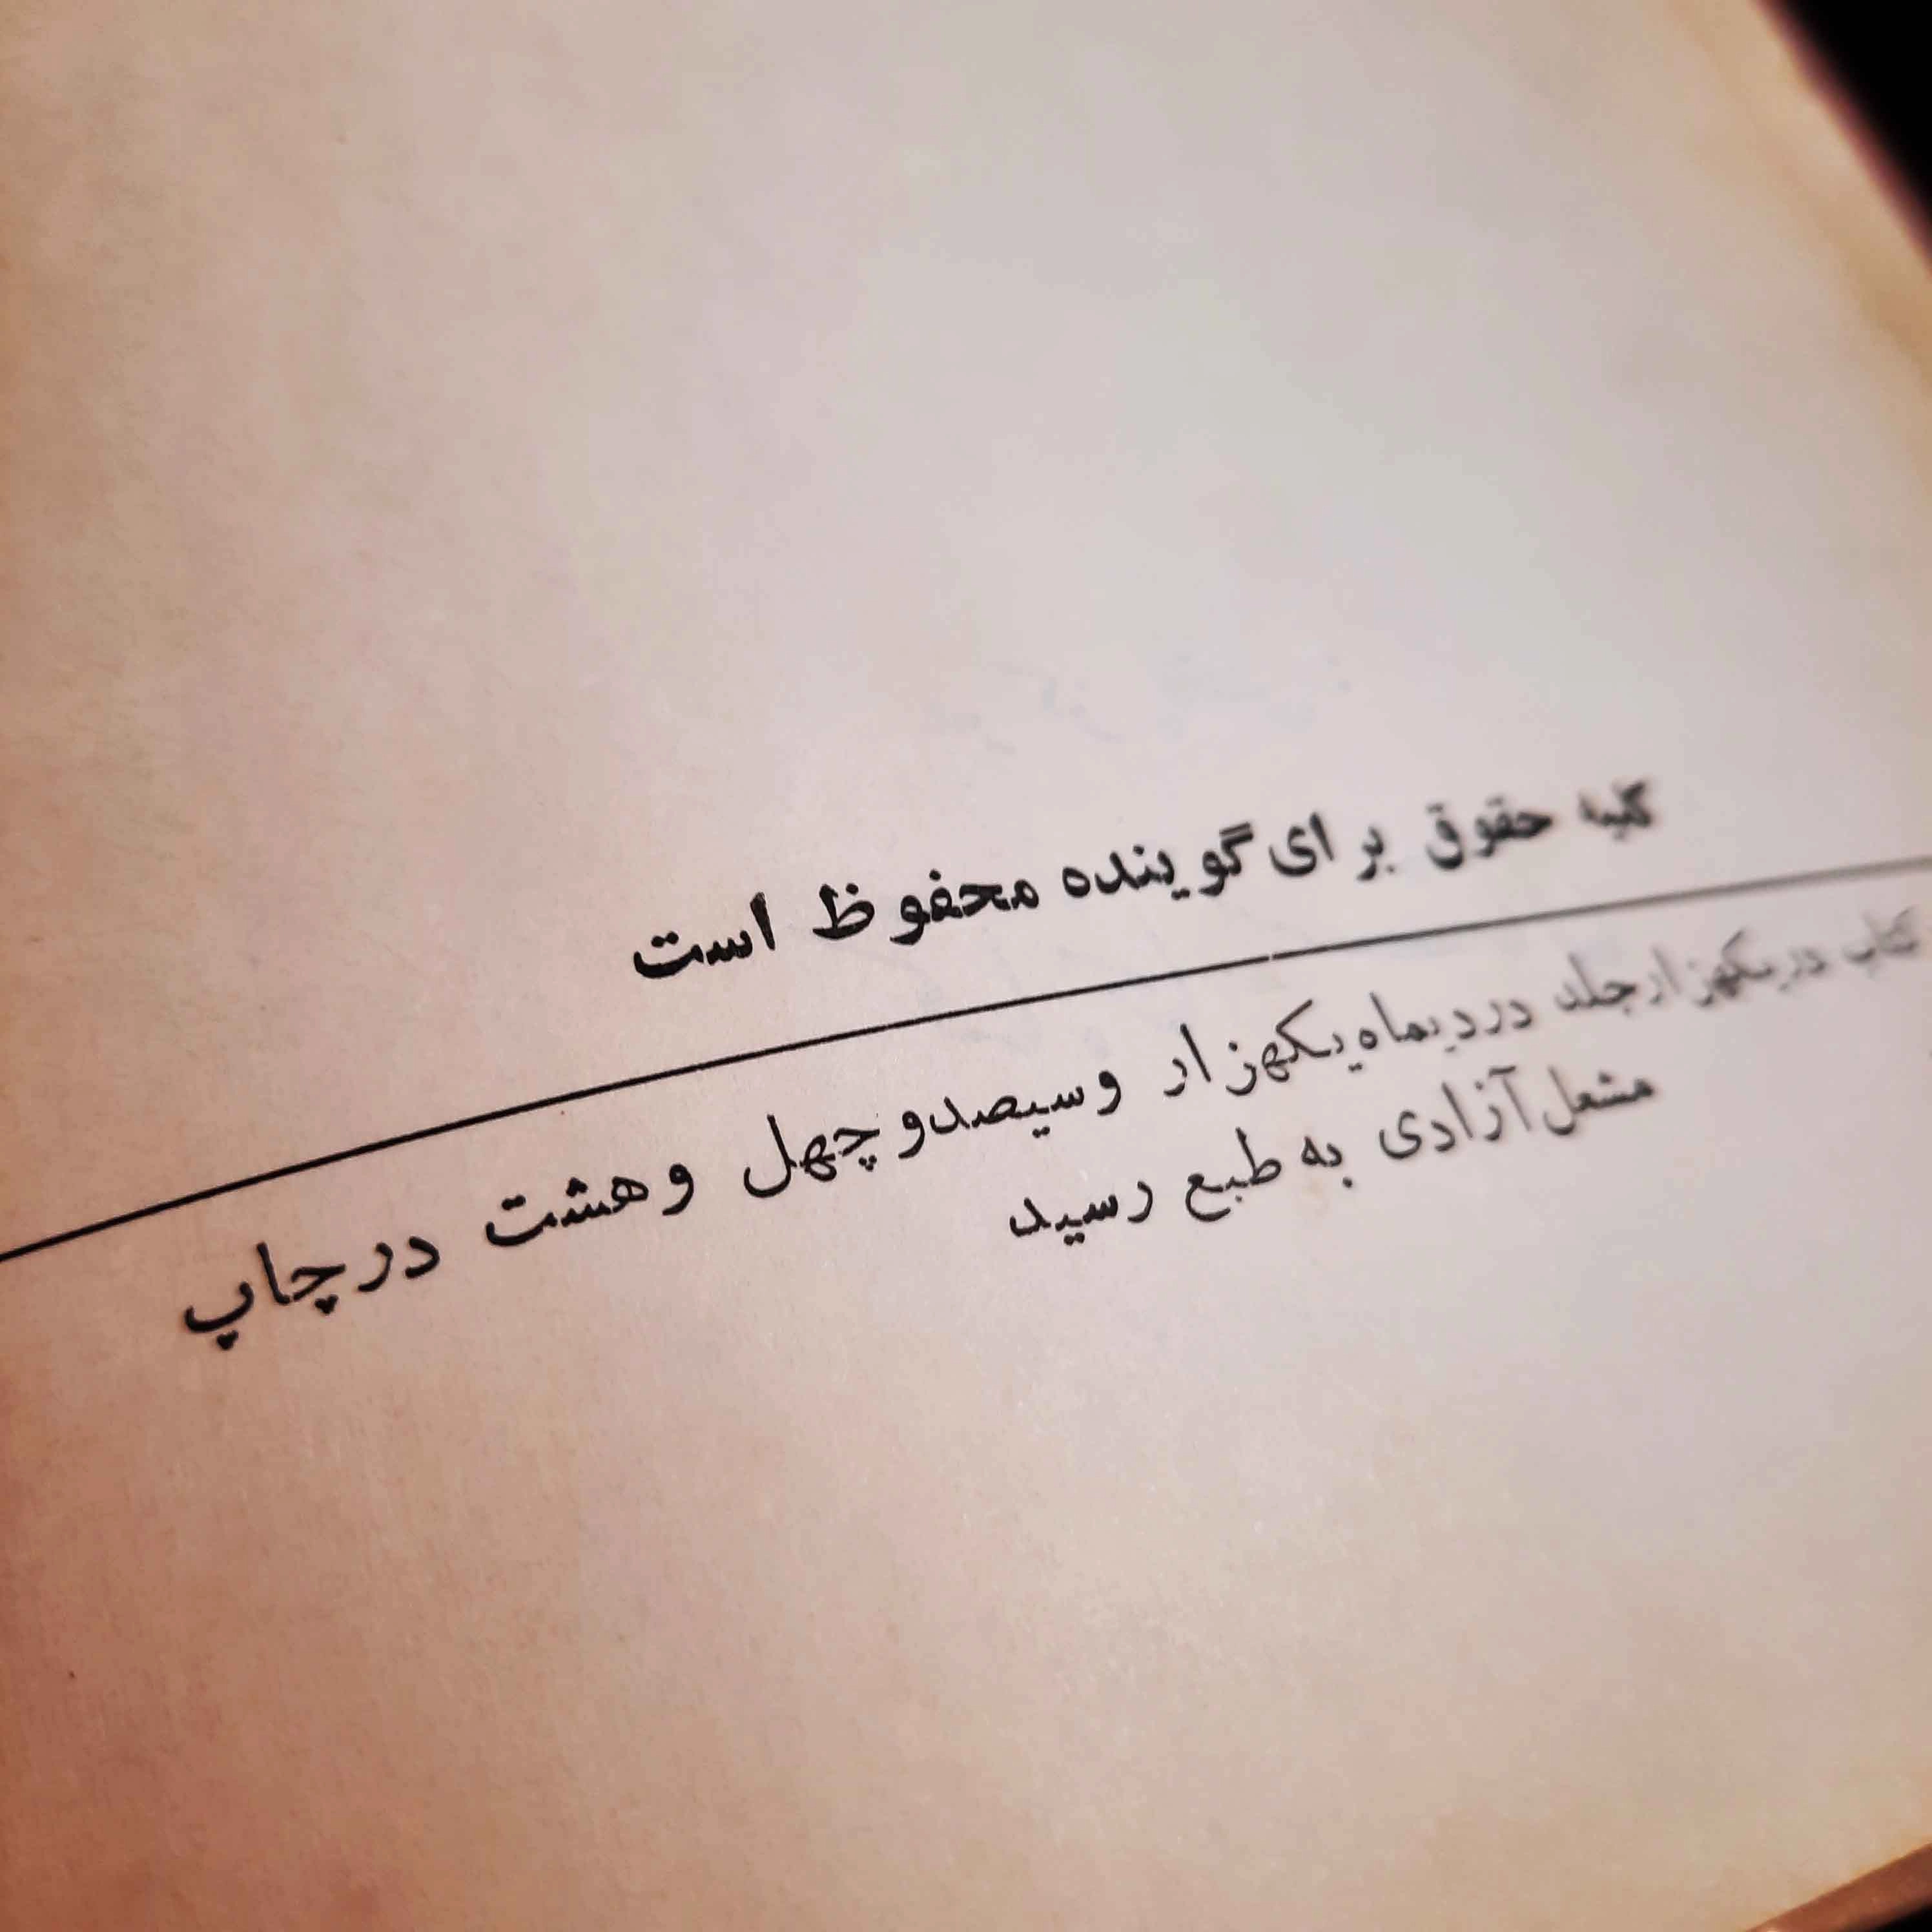 کلیه حقوق برای گوینده محفوظ است
کتاب در یکهزار جلد در دیماه یکهزار و سیصد و چهل و هشت در چاپ
مشعل آزادی به طبع رسید